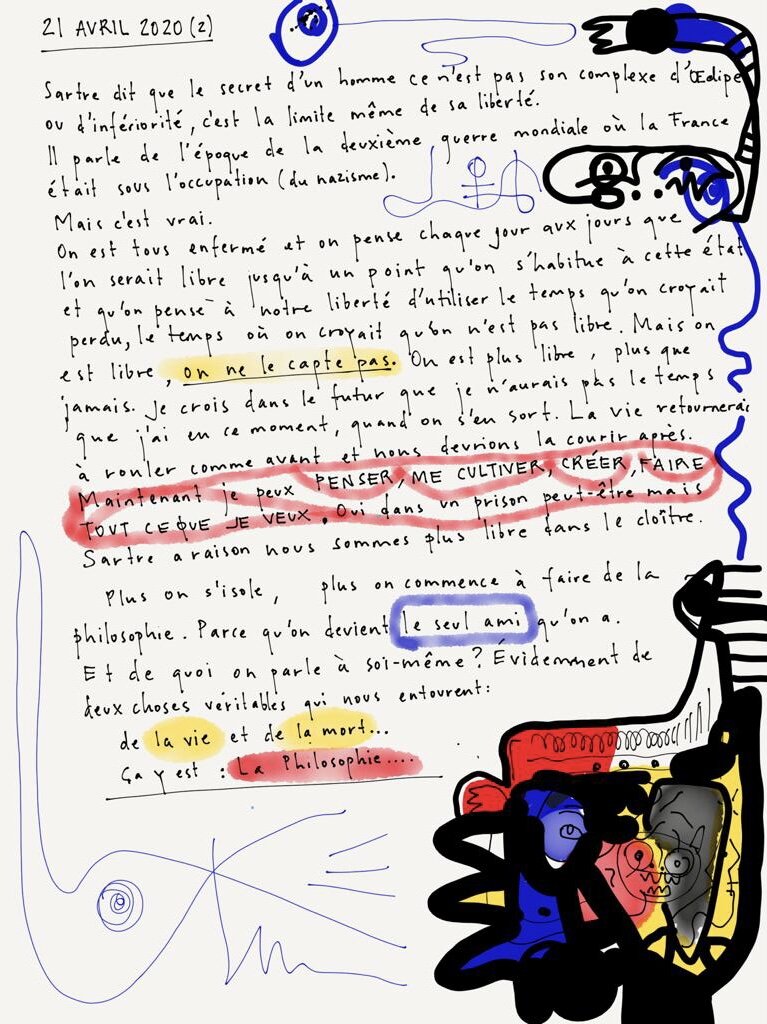 21 AVRIL 2020 (2)
Sartre dit que le secret d'un homme ce n'est pas son complexe d'Œdipe
ou d'infériorité, c'est la limite même de sa liberté.
Il parle de l'époque de la deuxième guerre mondiale où la France
était sous l'occupation (du nazisme).
Mais c'est vrai.
On est tous enfermé et on pense chaque jour aux jours que
l'on serait libre jusqu'à un point qu'on s'habitue à cette état
et qu'on pense à notre liberté d'utiliser le temps qu'on croyait
perdu, le temps où on croyait qu'on n'est pas libre. Mais on
est libre, on ne le capte pas. On est plus libre, plus que
jamais. Je crois dans le futur que je n'aurais pas le temps
que j'ai en ce moment, quand on s'en sort. La vie retournerai
à rouler comme avant et nous devrions la courir après.
Maintenant je peux PENSER, ME CULTIVER, CRÉER, FAIRE
TOUT CE QUE JE VEUX. Oui dans un prison peut-être mais
Sartre a raison nous sommes plus libre dans le cloître.
Plus on s'isole, plus on commence à faire de la
philosophie. Parce qu'on devient le seul ami qu'on a.
Et de quoi on parle à soi-même? Évidemment de
deux choses véritables qui nous entourent:
de la vie et de la mort...
Ça y est : La Philosophie....